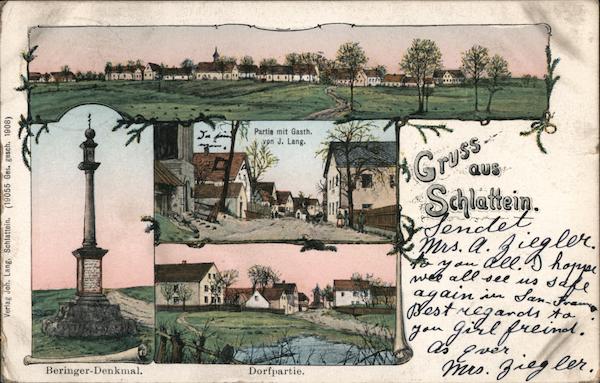 Partie mit Gasth.
von J. Lang.
Gruss
aus
Schlattein.
Sendet
Mrs. A. Ziegler.
to you all. I hopp
wee all see us safe
again in San-Fran
Best regards to
you Girl freind.
As ever
Mrs. Ziegler.
Beringer-Denkmal.
Dorfpartie.
Verlag Joh. Lang, Schlattein. (19055 Ges. gesch. 1908)